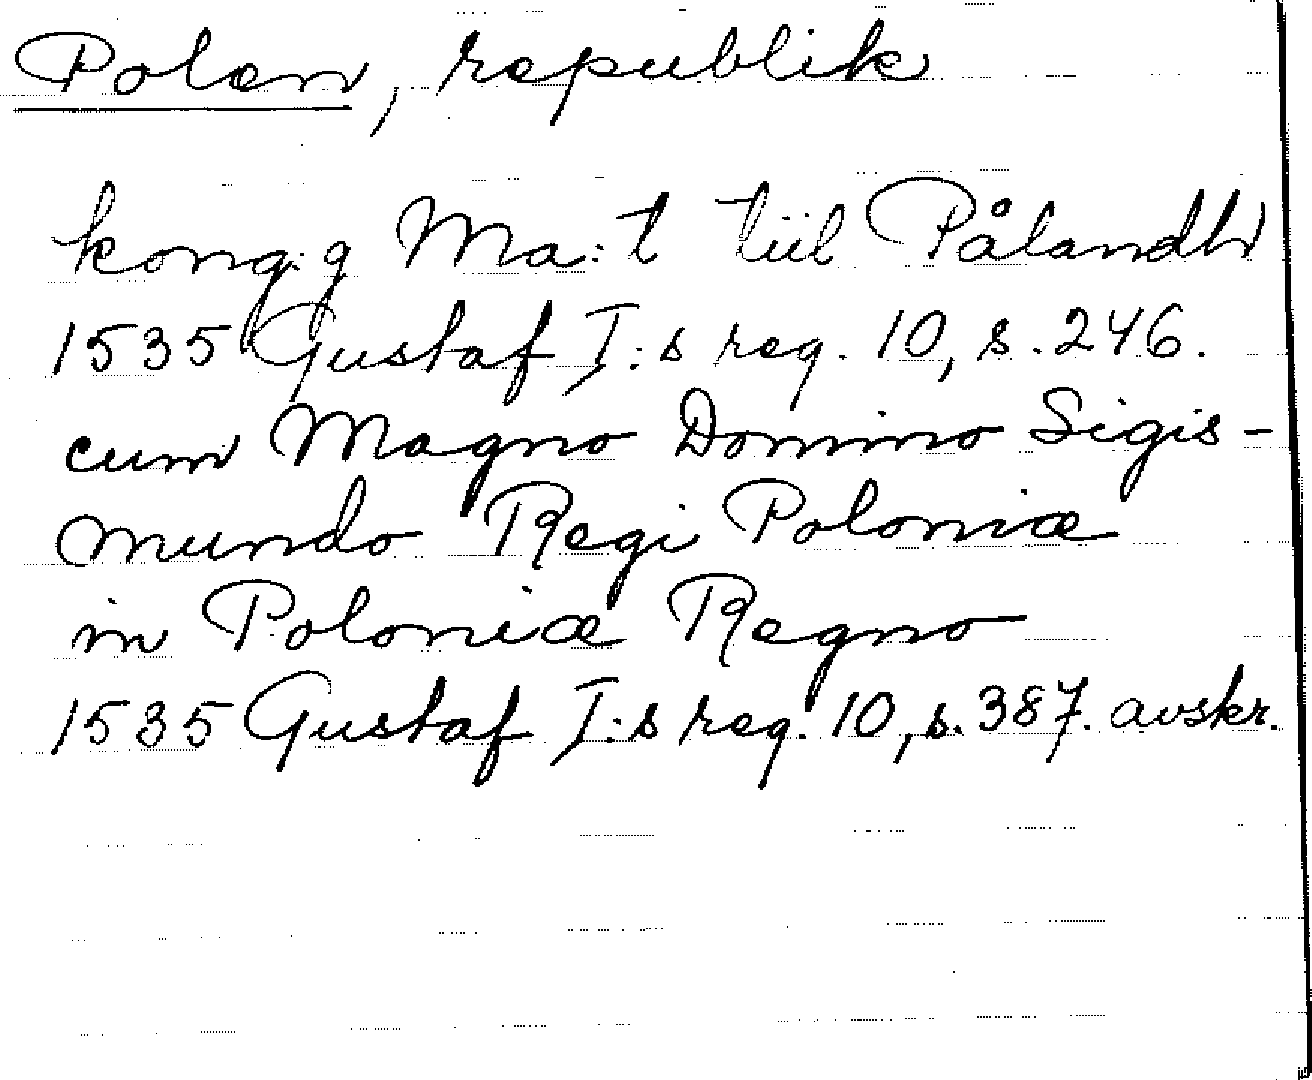 Polen, republik
kong:g Ma:t tiil Pålandh
1535 Gustaf I:s reg. 10, s. 246.
cum Magno Domino Sigis-
mundo Regi Poloniæ
in Poloniæ Regno
1535 Gustaf I:s reg. 10, s. 387. avskr.